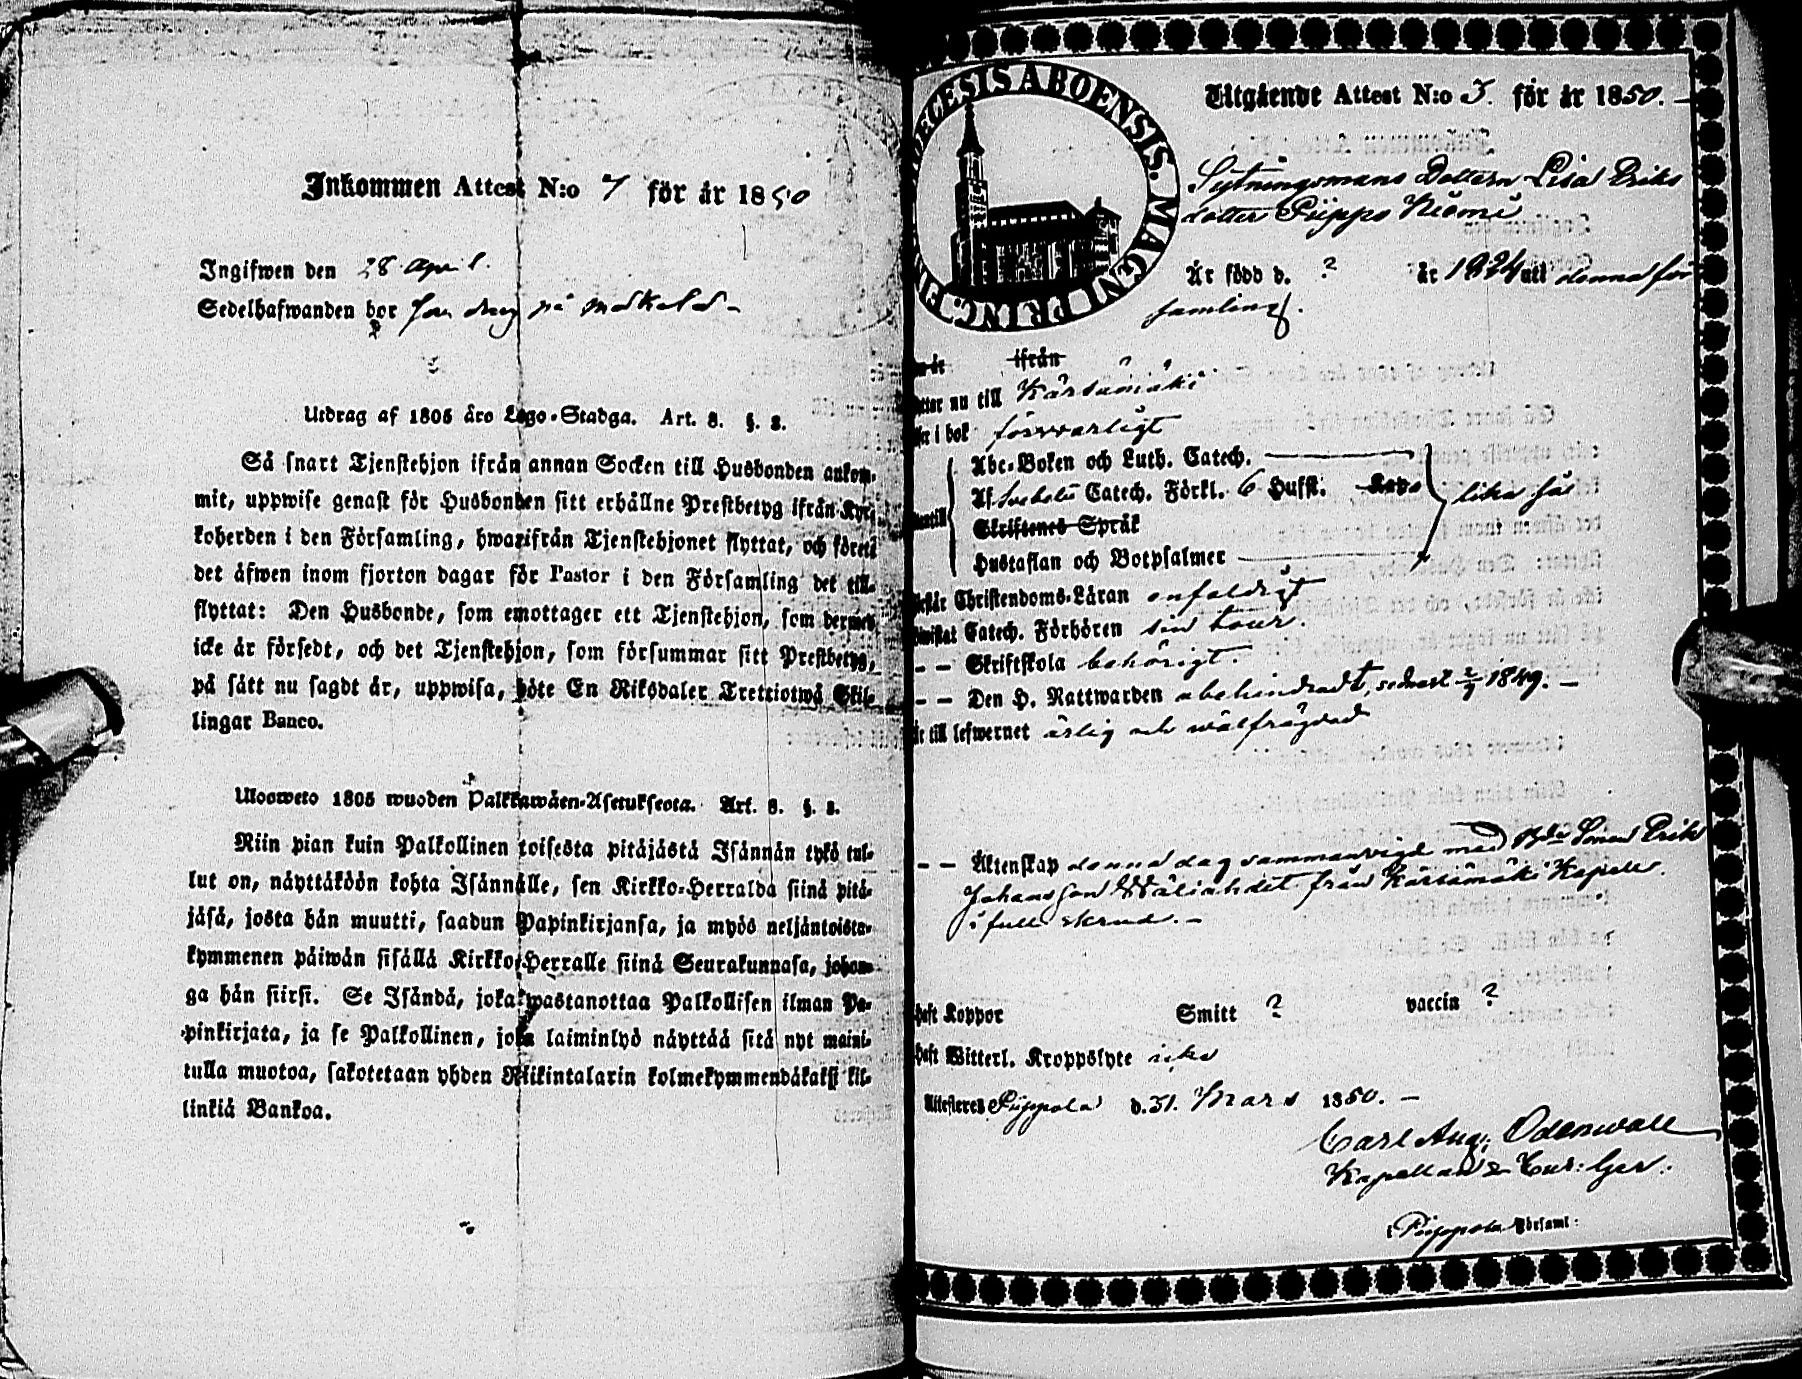 Inkommen Attest N:o 7 för år 1850
Ingifwen den 28 April.
Sedelhafwanden bor på
Utdrag af 1805 års Lego-Stadga. Art. 8. §. 2.
Så snart Tjenstehjon ifrån annan Socken till Husbonden ankom-
mit, uppwise genast för Husbonden sitt erhållne Prestbetyg ifrån Kyr-
koherden i den Församling, hwarifrån Tjenstehjonet flyttat, och förete
det äfwen inom fjorton dagar för Pastor i den Församling det till-
flyttat: Den Husbonde, som emottager ett Tjenstehjon, som dermed
icke är försedt, och det Tjenstehjon, som försummar sitt Prestbetyg,
på sätt nu sagdt är, uppwisa, böte En Riksdaler Trettiotwå Skil-
lingar Banco.
Uloosweto 1805 wuoden Palkkawäen-Asetuksesta. Art. 8. §. 2.
Niin pian kuin Palkollinen toisesta pitäjästä Isännän tykö tul-
lut on, näyttäköön kohta Isännälle, sen Kirkko-Herralda siinä pitä-
jäsä, josta hän muutti, saadun Papinkirjansa, ja myös neljäntoista-
kymmenen päiwän sisällä Kirkko-Herralle siinä Seurakunnasa, johon-
ga hän siirsi. Se Isändä, joka wastanottaa Palkollisen ilman Pa-
pinkirjata, ja se Palkollinen, joka laiminlyö näyttää sitä nyt maini-
tulla muotoa, sakotetaan yhden Riikintalarin kolmekymmendäkaksi kil-
linkiä Bankoa.
DIOECESIS ABOENSIS. MAGNI PRINC.
Utgående Attest N:o 3. för år 1850. –
Sytningsmans Dottern Lisa Eriks
dotter Piippo Niemi
Är född d. ? år 1824 uti denna för
samling.
ifrån
nu till Kärsämäki
i bok försvarligt
Abc-Boken och Luth. Catech.
Af Svebelii Catech. Förkl. 6 Hufst.
Skriftenes Språk
Hustaflan och Botpsalmer
Christendoms-Läran enfaldigt
Catech. Förhören sin tour.
– – Skriftskola behörigt.
– – Den H. Nattwarden obehindradt, sednast 2/9 1849. –
till lefwernet ärlig och wälfrägdad
– – Äktenskap denna dag sammanvigd med Bde Sonen Erik
Johansson från Kärsämäki Kapell.
i full skrud. –
haft Koppor Smitt ? vaccin ?
haft Witterl. Kroppslyte icke
Attesteres Piippola d. 31. Mars 1850. –
Carl Aug. Odenwall
Kapellan
i Piippola Församl: